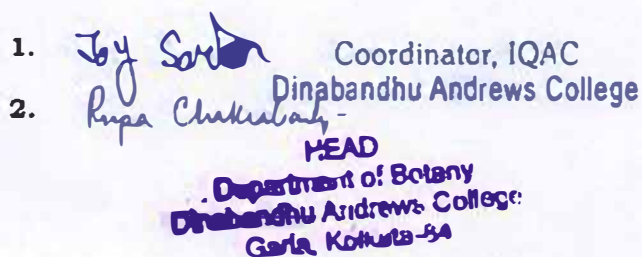 1. Joy
Coordinator, IQAC
Dinabandhu Andrews College
2. Rupa Chakrabarty
HEAD
Department of Botany
Dinabandhu Andrews College
Garia, Kolkata-84